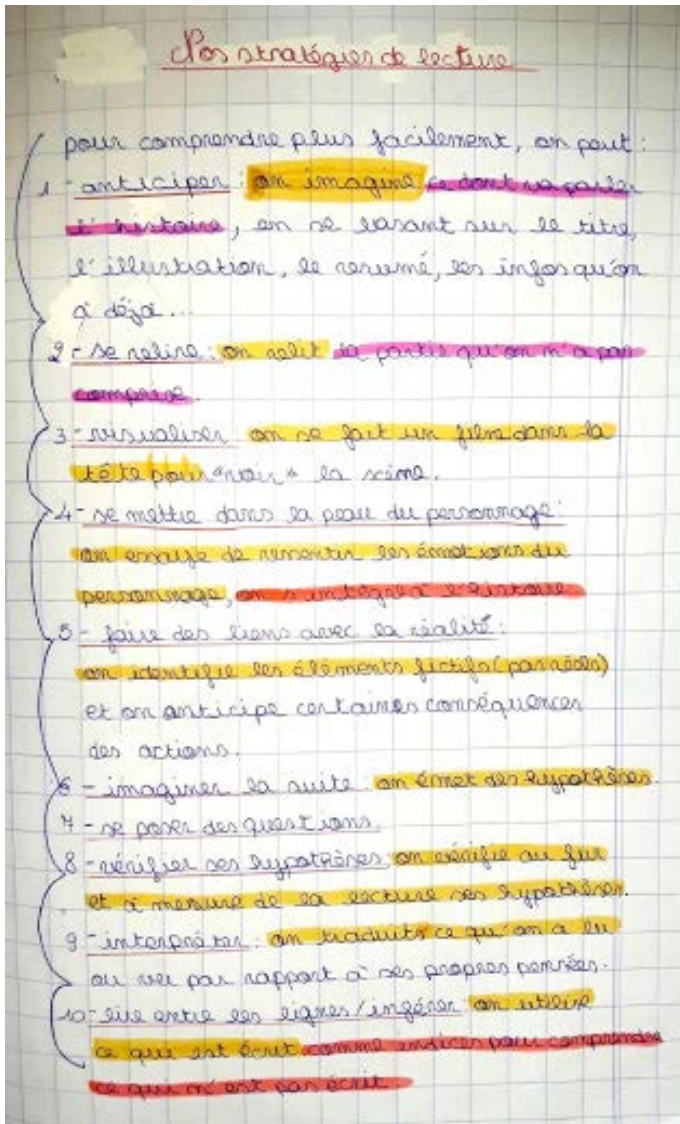 Nos stratégies de lecture
pour comprendre plus facilement, on peut :
1 - anticiper : on imagine ce dont va parler
l'histoire, en se basant sur le titre,
l'illustration, le resumé, les infos qu'on
a déjà...
2 - se relire : on relit la partis qu'on n'a pas
comprise.
3 - visualiser : on se fait un film dans la
tête pour "voir" la scène.
4 - se mettre dans la peau du personnage :
on essaye de ressentir les émotions du
personnage, on s'intègre à l'histoire
5 - faire des liens avec la réalité :
on identifie les éléments fictifs (pas réels)
et on anticipe certaines conséquences
des actions.
6 - imaginer la suite : on émet des hypothèses.
7 - se poser des questions.
8 - vérifier ses hypothèses : on vérifie au fur
et à mesure de la lecture ses hypothèses.
9 - interpréter : on traduits ce qu'on a lu
ou vu par rapport à ses propres pensées.
10 - lire entre les lignes / inférer : on utilise
ce qui est écrit comme indices pour comprendre
ce qui n'est pas écrit.